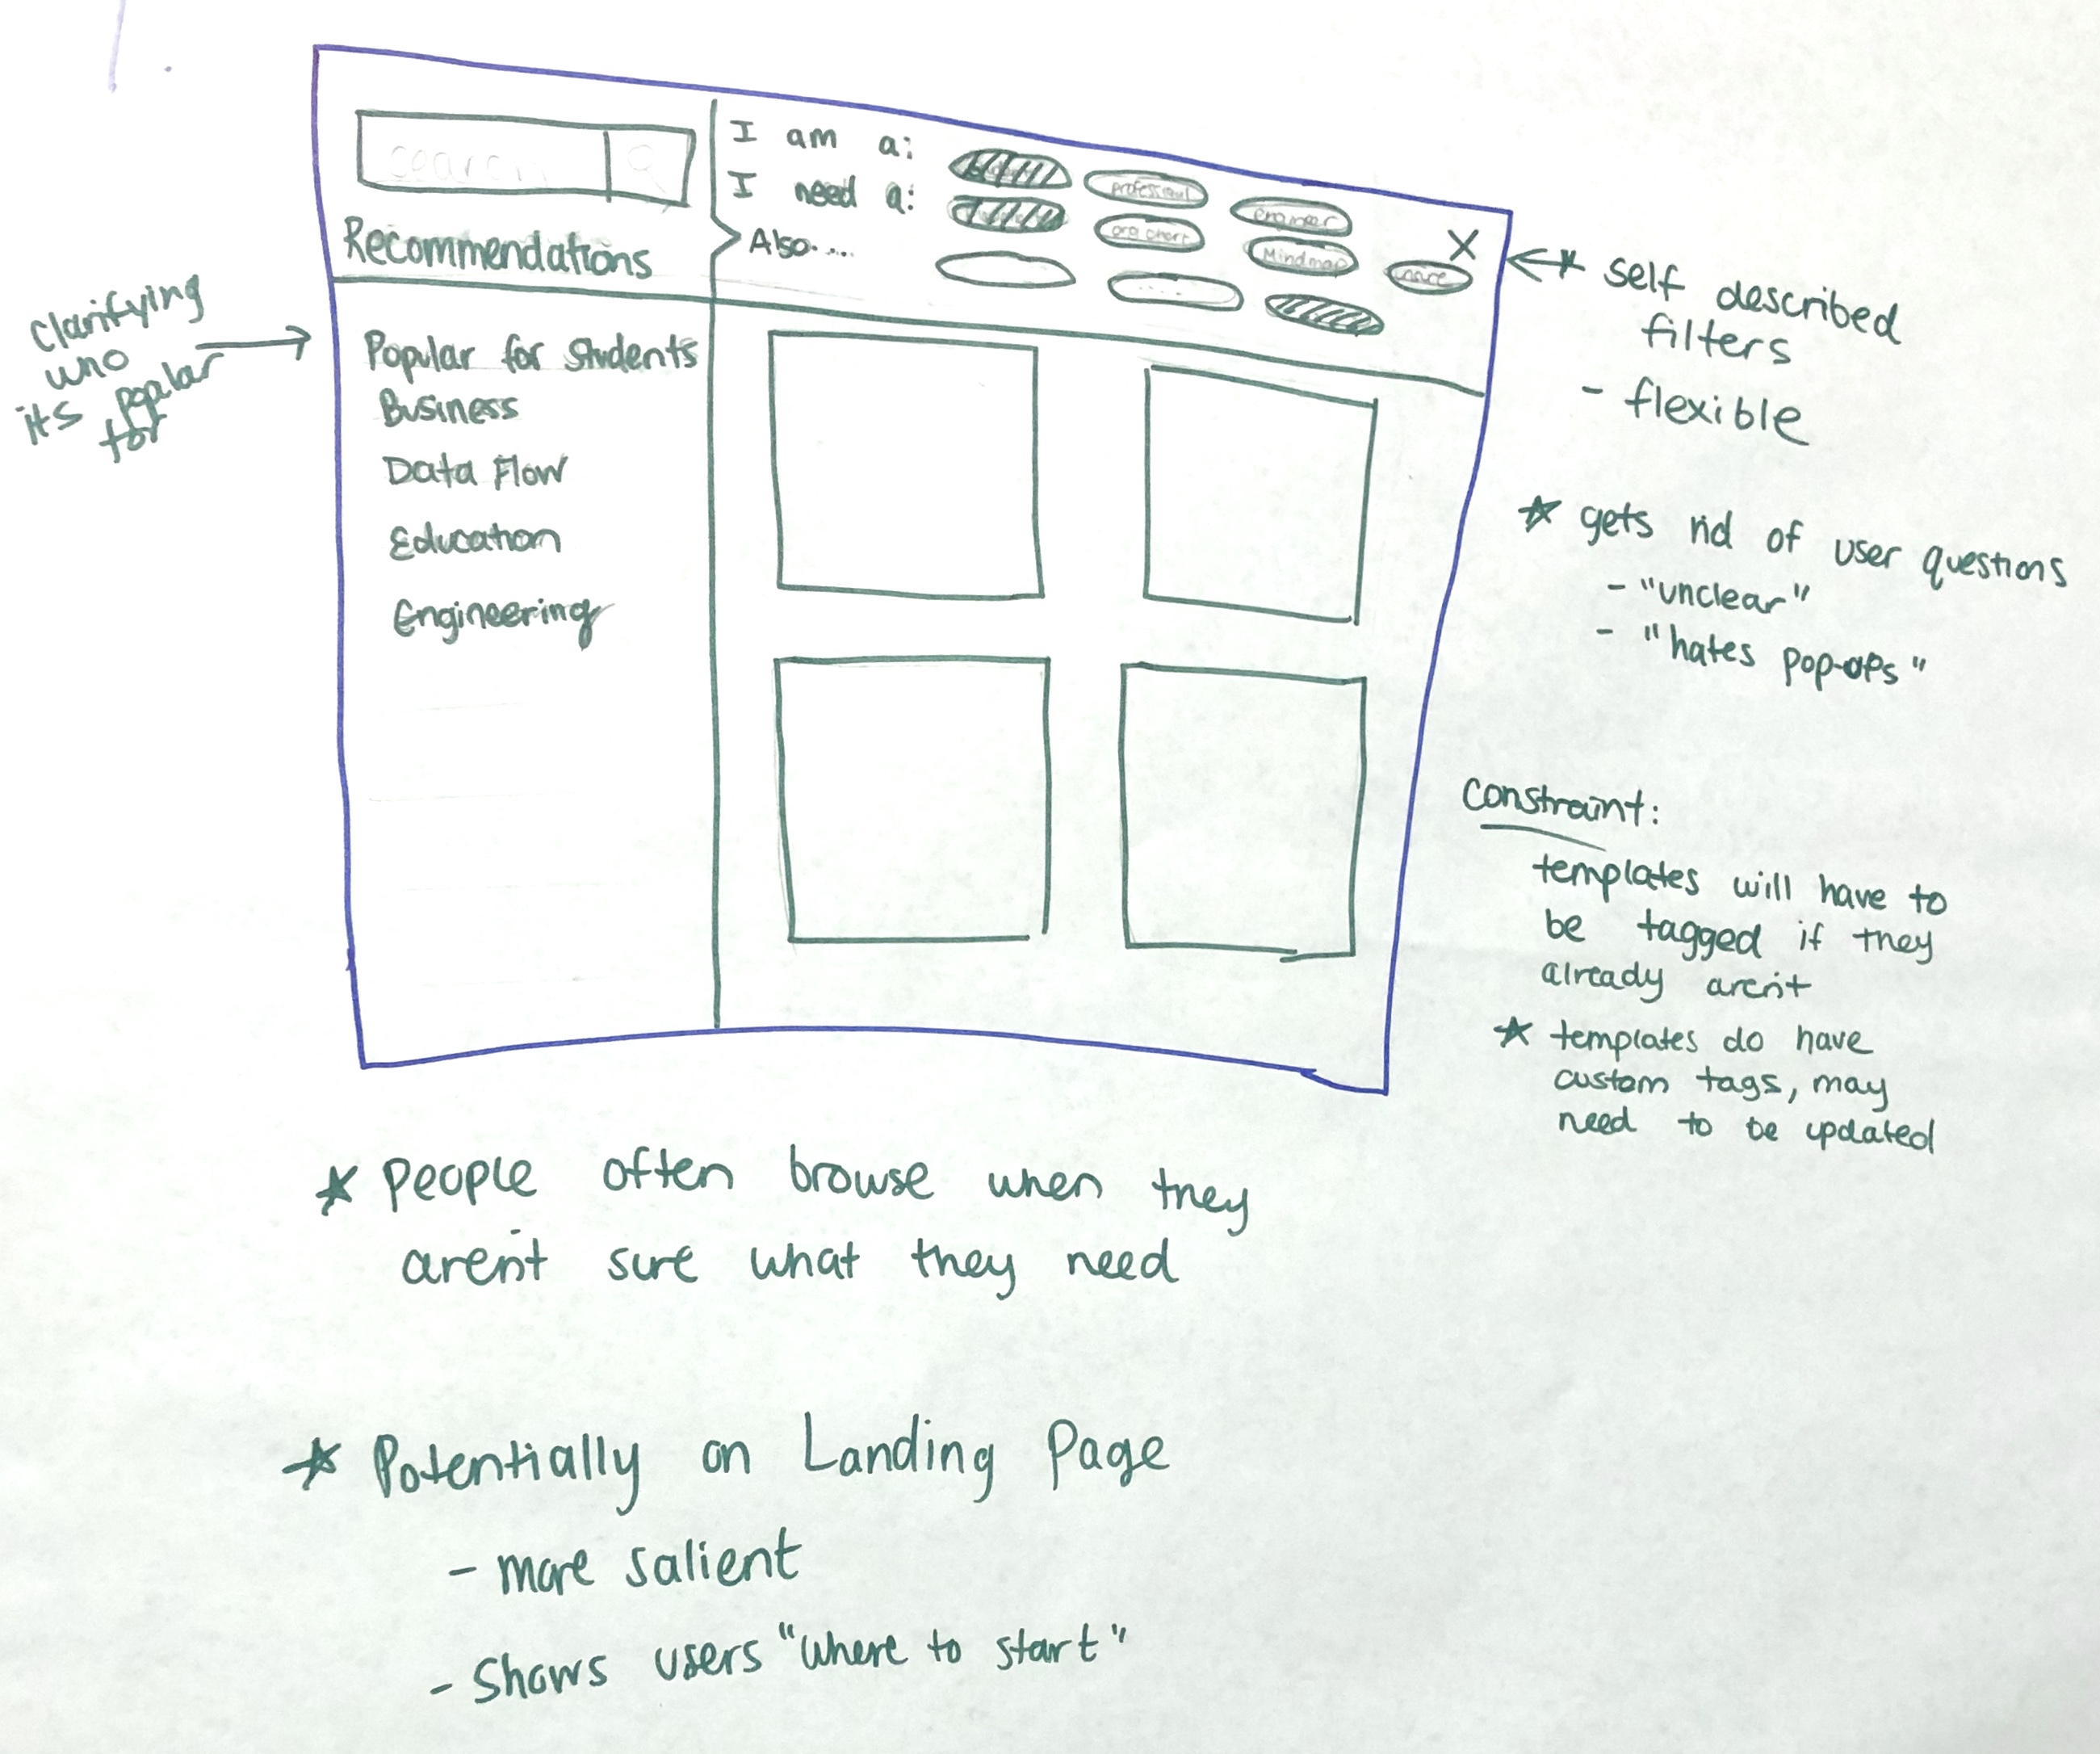 search
Recommendations
I am a:
professional
engineer
I need a:
org chart
Mindmap
Also....
X
Popular for Students
Business
Data Flow
Education
Engineering
Clarifying
who
its popular
for
self described
filters
- flexible
gets rid of user questions
- "unclear"
- "hates pop-ups"
Constraint:
templates will have to
be tagged if they
already aren't
templates do have
custom tags, may
need to be updated
People often browse when they
aren't sure what they need
Potentially on Landing Page
- more salient
- Shows users "where to start"